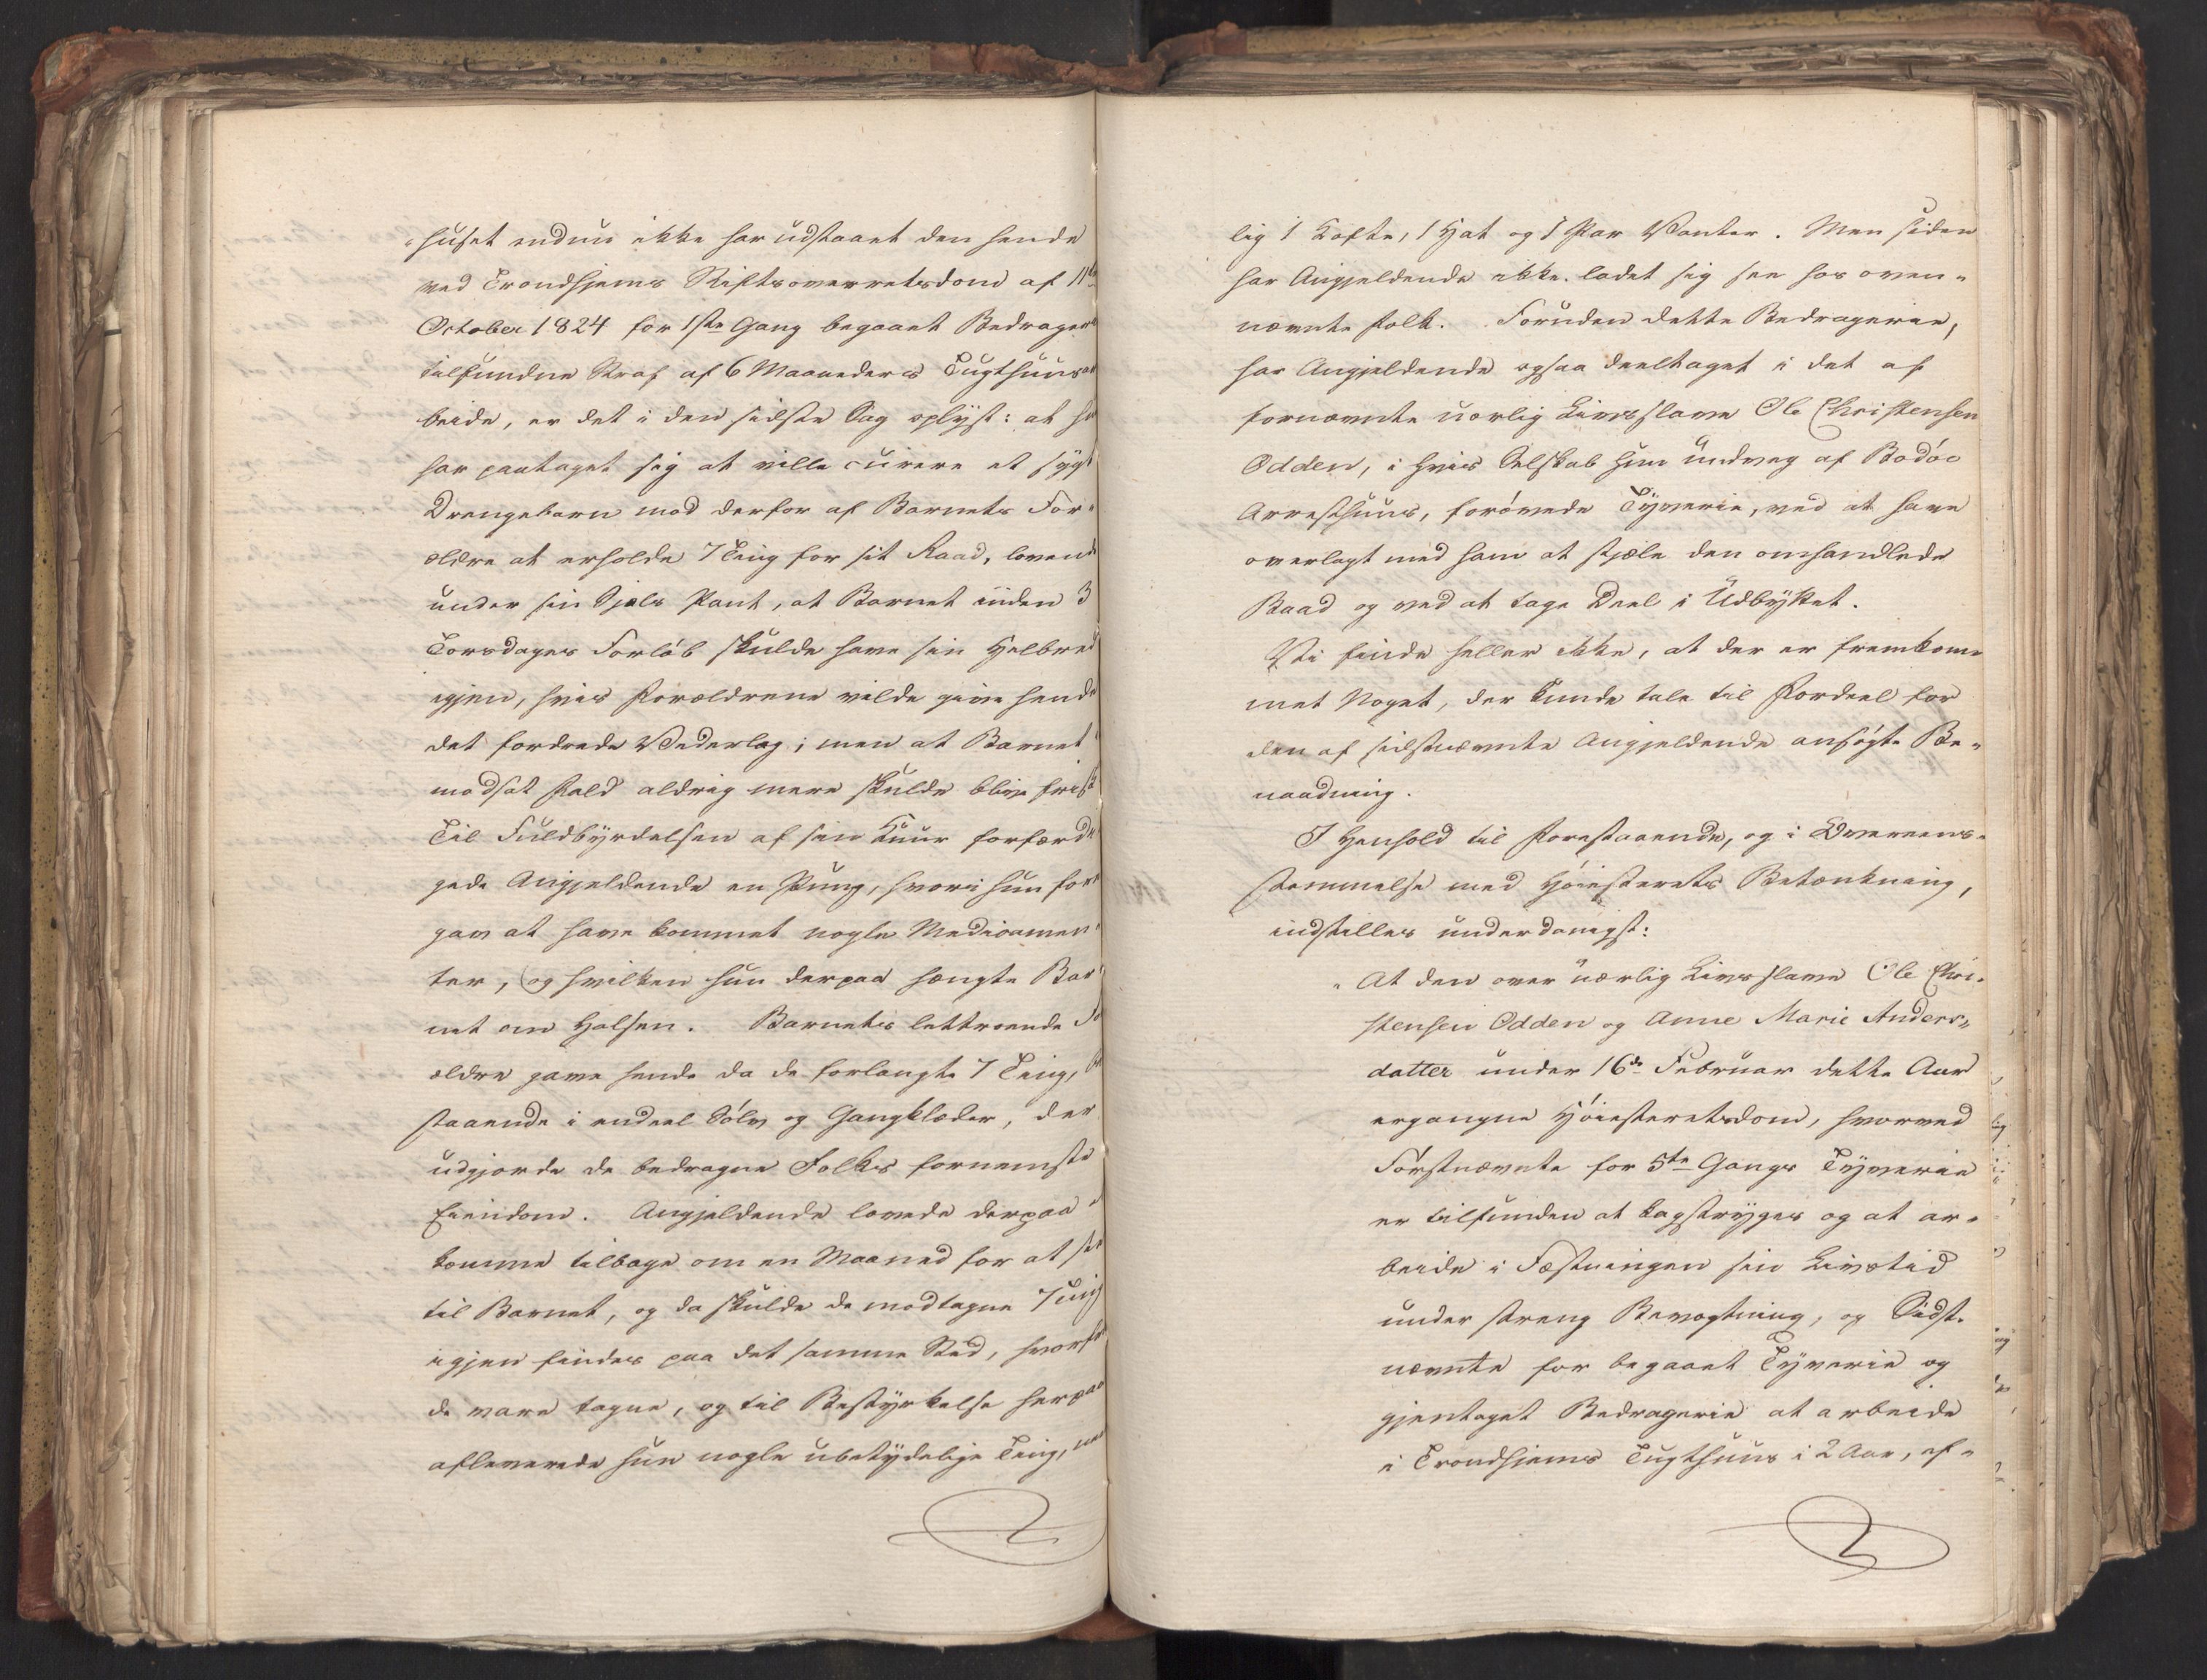 „huset endnu ikke har udstaaet den hende
ved Trondhjems Stiftsoverretsdom af 11te
October 1824 for 1ste Gang begaaet Bedrageri
tilfundne Straf af 6 Maaneders Tugthuusar
beide, er det i den sidste Sag oplyst: at hun
har paataget sig at ville curere et sygt
Drengebarn mod derfor af Barnets For„
ældre at erholde 7 Ting for sit Raad, lovende
under sin Sjæls Pant, at Barnet inden 3
Torsdages Forløb skulde have sin Helbred
igjen, hvis Forældrene vilde give hende
det fordrede Vederlag; men at Barnet
modsat Fald aldrig mere skulde blive frisk
Til Fuldbyrdelsen af sin Kuur forfærdi
gede Angjeldende en Pung, hvori hun fore
gav at have kommet nogle Medicamen„
ter, og hvilken hun derpaa hængte Bar
net om Halsen. Barnets lettroende For
ældre gave hende da de forlangte 7 Ting, be
staaende i endeel Sølv og Gangklæder, der
udgjorde de bedragne Folks fornemste
Eiendom. Angjeldende lovede derpaa at
komme tilbage om en Maaned for at see
til Barnet, og da skulde de modtagne 7 Ting
igjen findes paa det samme Sted, hvorfra
de vare tagne, og til Bestyrkelse herpaa
afleverede hun nogle ubetydelige Ting,
lig 1 Kofte, 1 Hat og 1 Par Vanter. Men siden
har Angjeldende ikke ladet sig see hos oven„
nævnte Folk. Foruden dette Bedragerie,
har Angjeldende ogsaa deeltaget i det af
fornævnte uærlig Livsslave Ole Christensen
Odden, i hvis Selskab hun undveg af Bodøe
Arresthuus, forøvede Tyverie, ved at have
overlagt med ham at stjæle den omhandlede
Baad og ved at tage Deel i Udbyttet.
Vi finde heller ikke, at der er fremkom„
met Noget, der kunde tale til Fordeel for
den af sidstnævnte Angjeldende ansøgte Be„
naadning.
I Henhold til Forestaaende, og i Overeens„
stemmelse med Høiesterets Betænkning,
indstilles underdanigst:
„At den over uærlig Livsslave Ole Chri„
stensen Odden og Anne Marie Anders„
datter under 16de Februar dette Aar
ergangne Høiesteretsdom, hvorved
Førstnævnte for 5te Gangs Tyverie
er tilfunden at kagstryges og at ar„
beide i Fæstningen sin Livstid
under streng Bevogtning, og Sidst„
nævnte for begaaet Tyverie og
gjentaget Bedragerie at arbeide
i Trondhjems Tugthuus i 2 Aar, af„